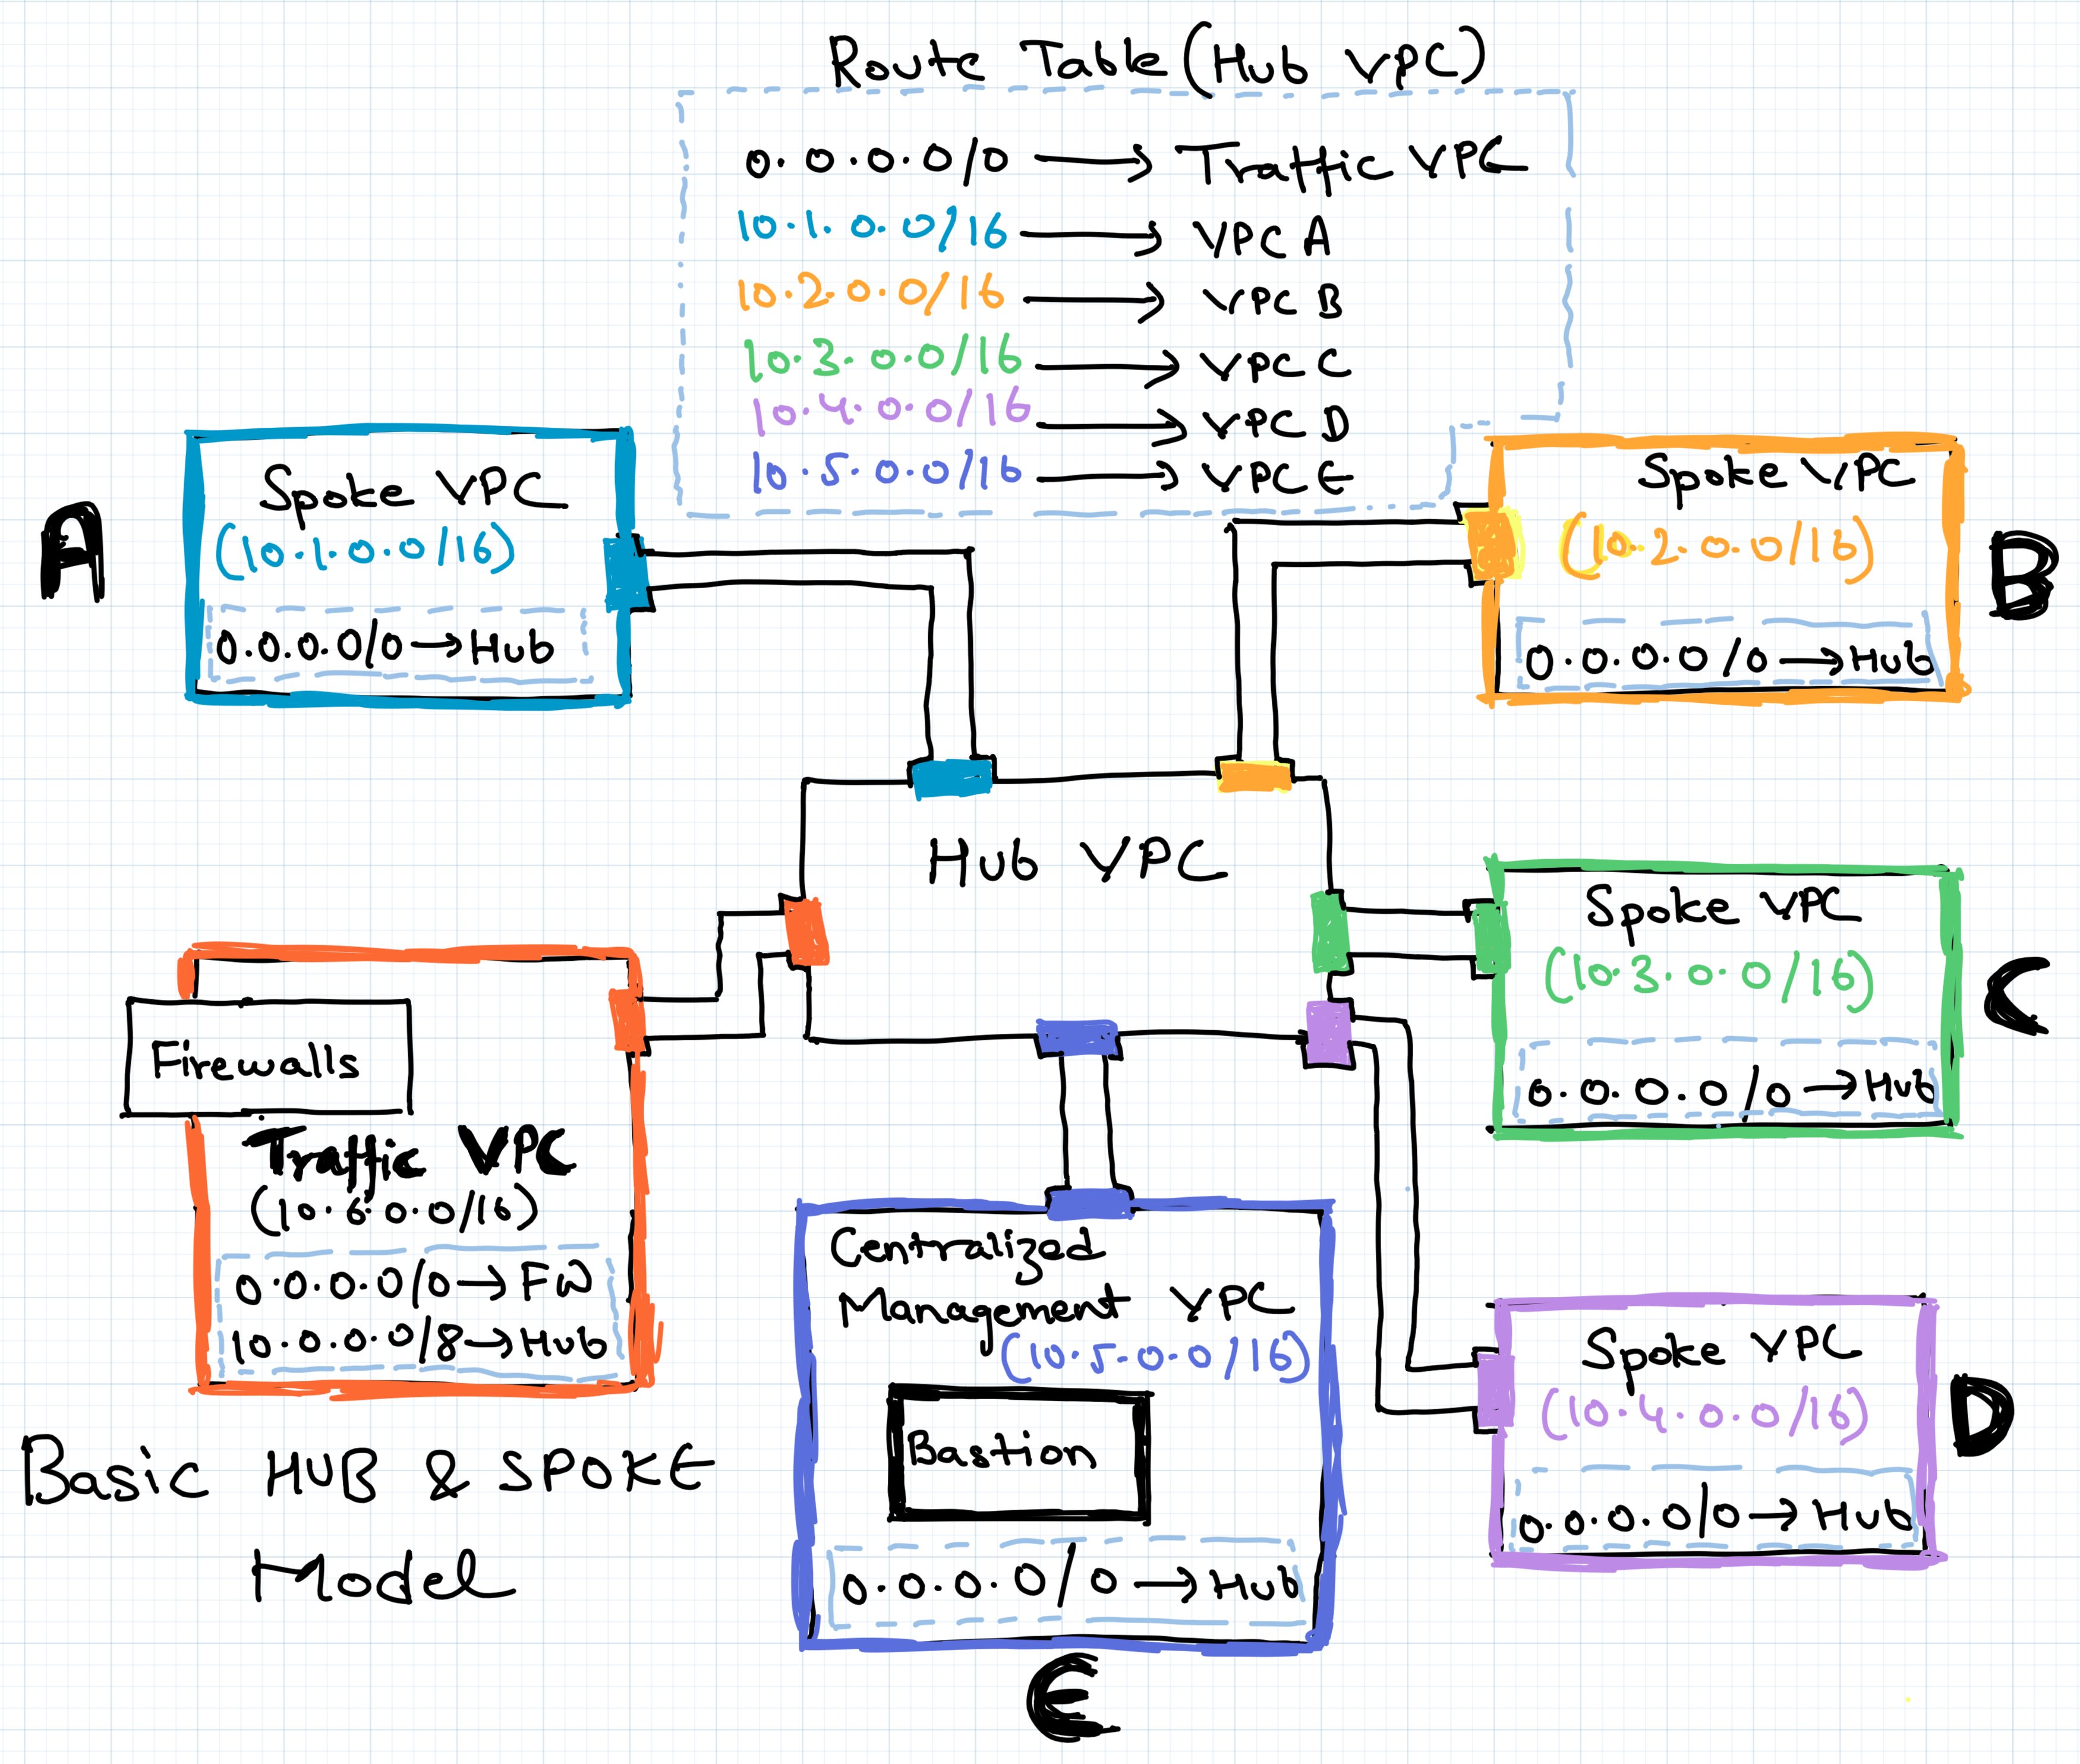 Route Table (Hub VPC)
0.0.0.0/0 → Traffic VPC
10.1.0.0/16 → VPC A
10.2.0.0/16 → VPC B
10.3.0.0/16 → VPC C
10.4.0.0/16 → VPC D
10.5.0.0/16 → VPC E
A
Spoke VPC
(10.1.0.0/16)
0.0.0.0/0 → Hub
Spoke VPC
(10.2.0.0/16)
0.0.0.0/0 → Hub
B
Hub VPC
Spoke VPC
(10.3.0.0/16)
0.0.0.0/0 → Hub
C
Firewalls
Traffic VPC
(10.6.0.0/16)
0.0.0.0/0 → FW
10.0.0.0/8 → Hub
Centralized
Management VPC
(10.5.0.0/16)
Bastion
0.0.0.0/0 → Hub
E
Spoke VPC
(10.4.0.0/16)
0.0.0.0/0 → Hub
D
Basic HUB & SPOKE
Model